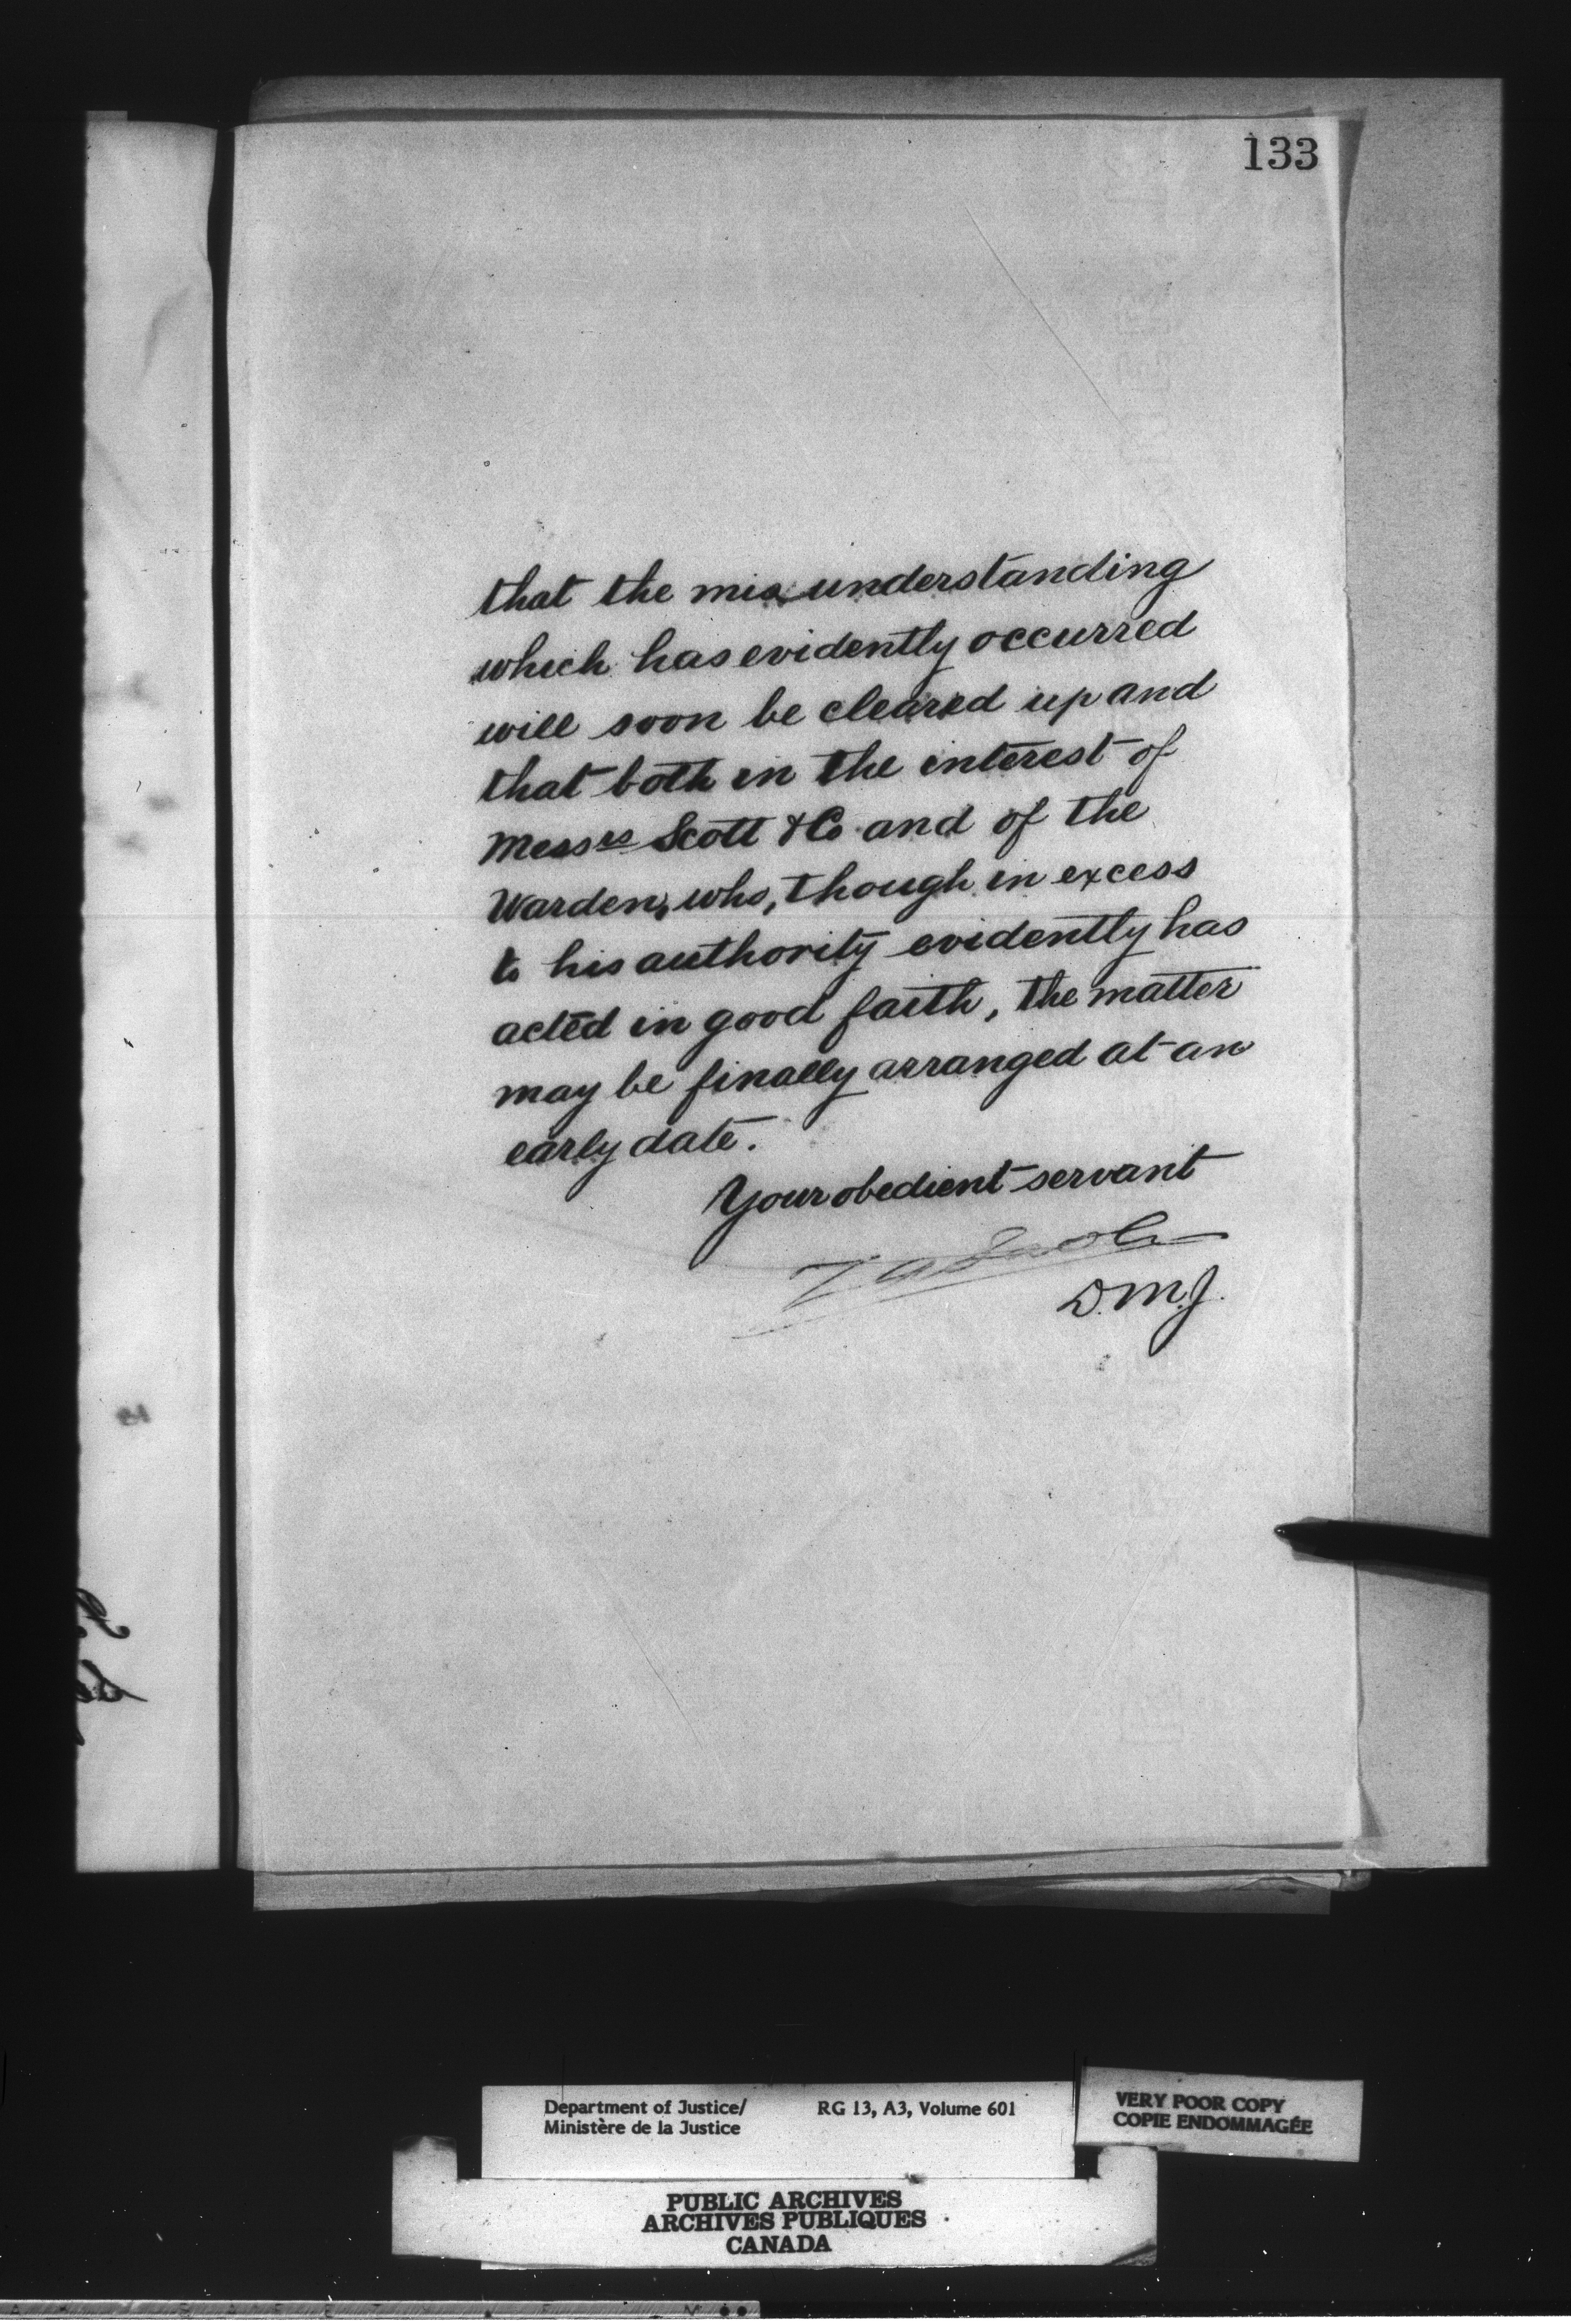 133
that the misunderstanding
which has evidently occurred
will soon be cleared up and
that both in the interest of
Messrs Scott & Co. and of the
Warden, who, though in excess
to his authority evidently has
acted in good faith, the matter
may be finally arranged at an
early date.
Your obedient servant
D.M.J.
Department of Justice/ RG 13, A3, Volume 601
Ministère de la Justice
VERY POOR COPY
COPIE ENDOMMAGÉE
PUBLIC ARCHIVES
ARCHIVES PUBLIQUES
CANADA